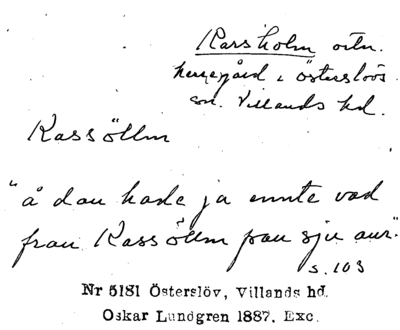 Karsholm ortn.
herregård i Österslövs
sn. Villands hd.
Kassöllm
"å dau hade ja ennte vad
frau Kassöllm pau sju aur"
s. 103
Nr 5181 Österslöv, Villands hd.
Oskar Lundgren 1887. Exc.